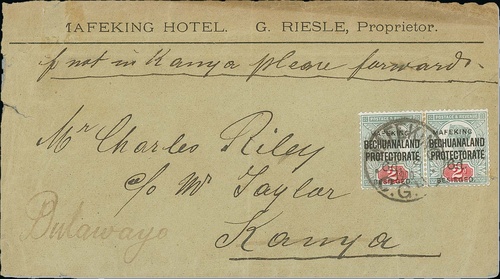 MAFEKING HOTEL. G. RIESLE, Proprietor.
if not in Kanya please forward.
Mr Charles Riley
c/o Mr Taylor
Kanya
Bulawayo
POSTAGE & REVENUE POSTAGE & REVENUE
MAFEKING MAFEKING
BECHUANALAND BECHUANALAND
PROTECTORATE PROTECTORATE
2 2
BESIEGED. BESIEGED.